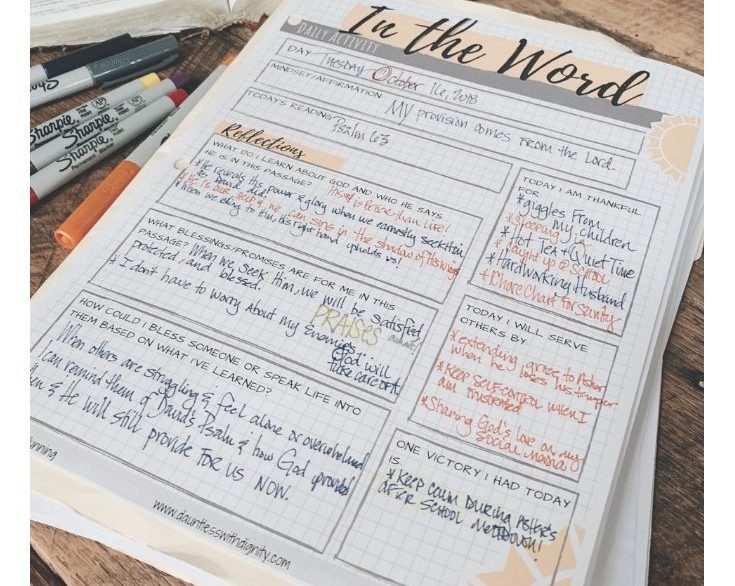 In the Word
DAILY ACTIVITY
DAY Tuesday October 16, 2018
MINDSET/AFFIRMATION My provision comes from the Lord.
TODAY'S READING Psalm 63
Reflections
WHAT DO I LEARN ABOUT GOD AND WHO HE SAYS
HE IS IN THIS PASSAGE? is better than life!
*He reveals His power & glory when we earnestly seek Him,
like David did.
*He is our help & we can sing in the shadow of His wings
*When we cling to Him, His right hand upholds us!
WHAT BLESSINGS/PROMISES ARE FOR ME IN THIS
PASSAGE? When we seek Him, we will be satisfied,
protected, and blessed. PRAISES
* I don't have to worry about my Enemies
God will
take care of it
HOW COULD I BLESS SOMEONE OR SPEAK LIFE INTO
THEM BASED ON WHAT I'VE LEARNED?
When others are struggling & feel alone or overwhelmed
I can remind them of David's Psalm & how God provided
& He will still provide for us now.
TODAY I AM THANKFUL
FOR:
*giggles From
my children
*Sleeping in
*Hot Tea & Quiet Time
*Caught up @ School
*Hardworking Husband
*Chore Chart for sanity
TODAY I WILL SERVE
OTHERS BY:
*extending grace to Asher
when he loses his temper
*Keep self control when I
am frustrated
*Sharing God's love on my
social media
ONE VICTORY I HAD TODAY
IS
*Keep calm during Asher's
after school meltdown!
unning
www.dauntlesswithdignity.com
Sharpie
Sharpie
Sharpie